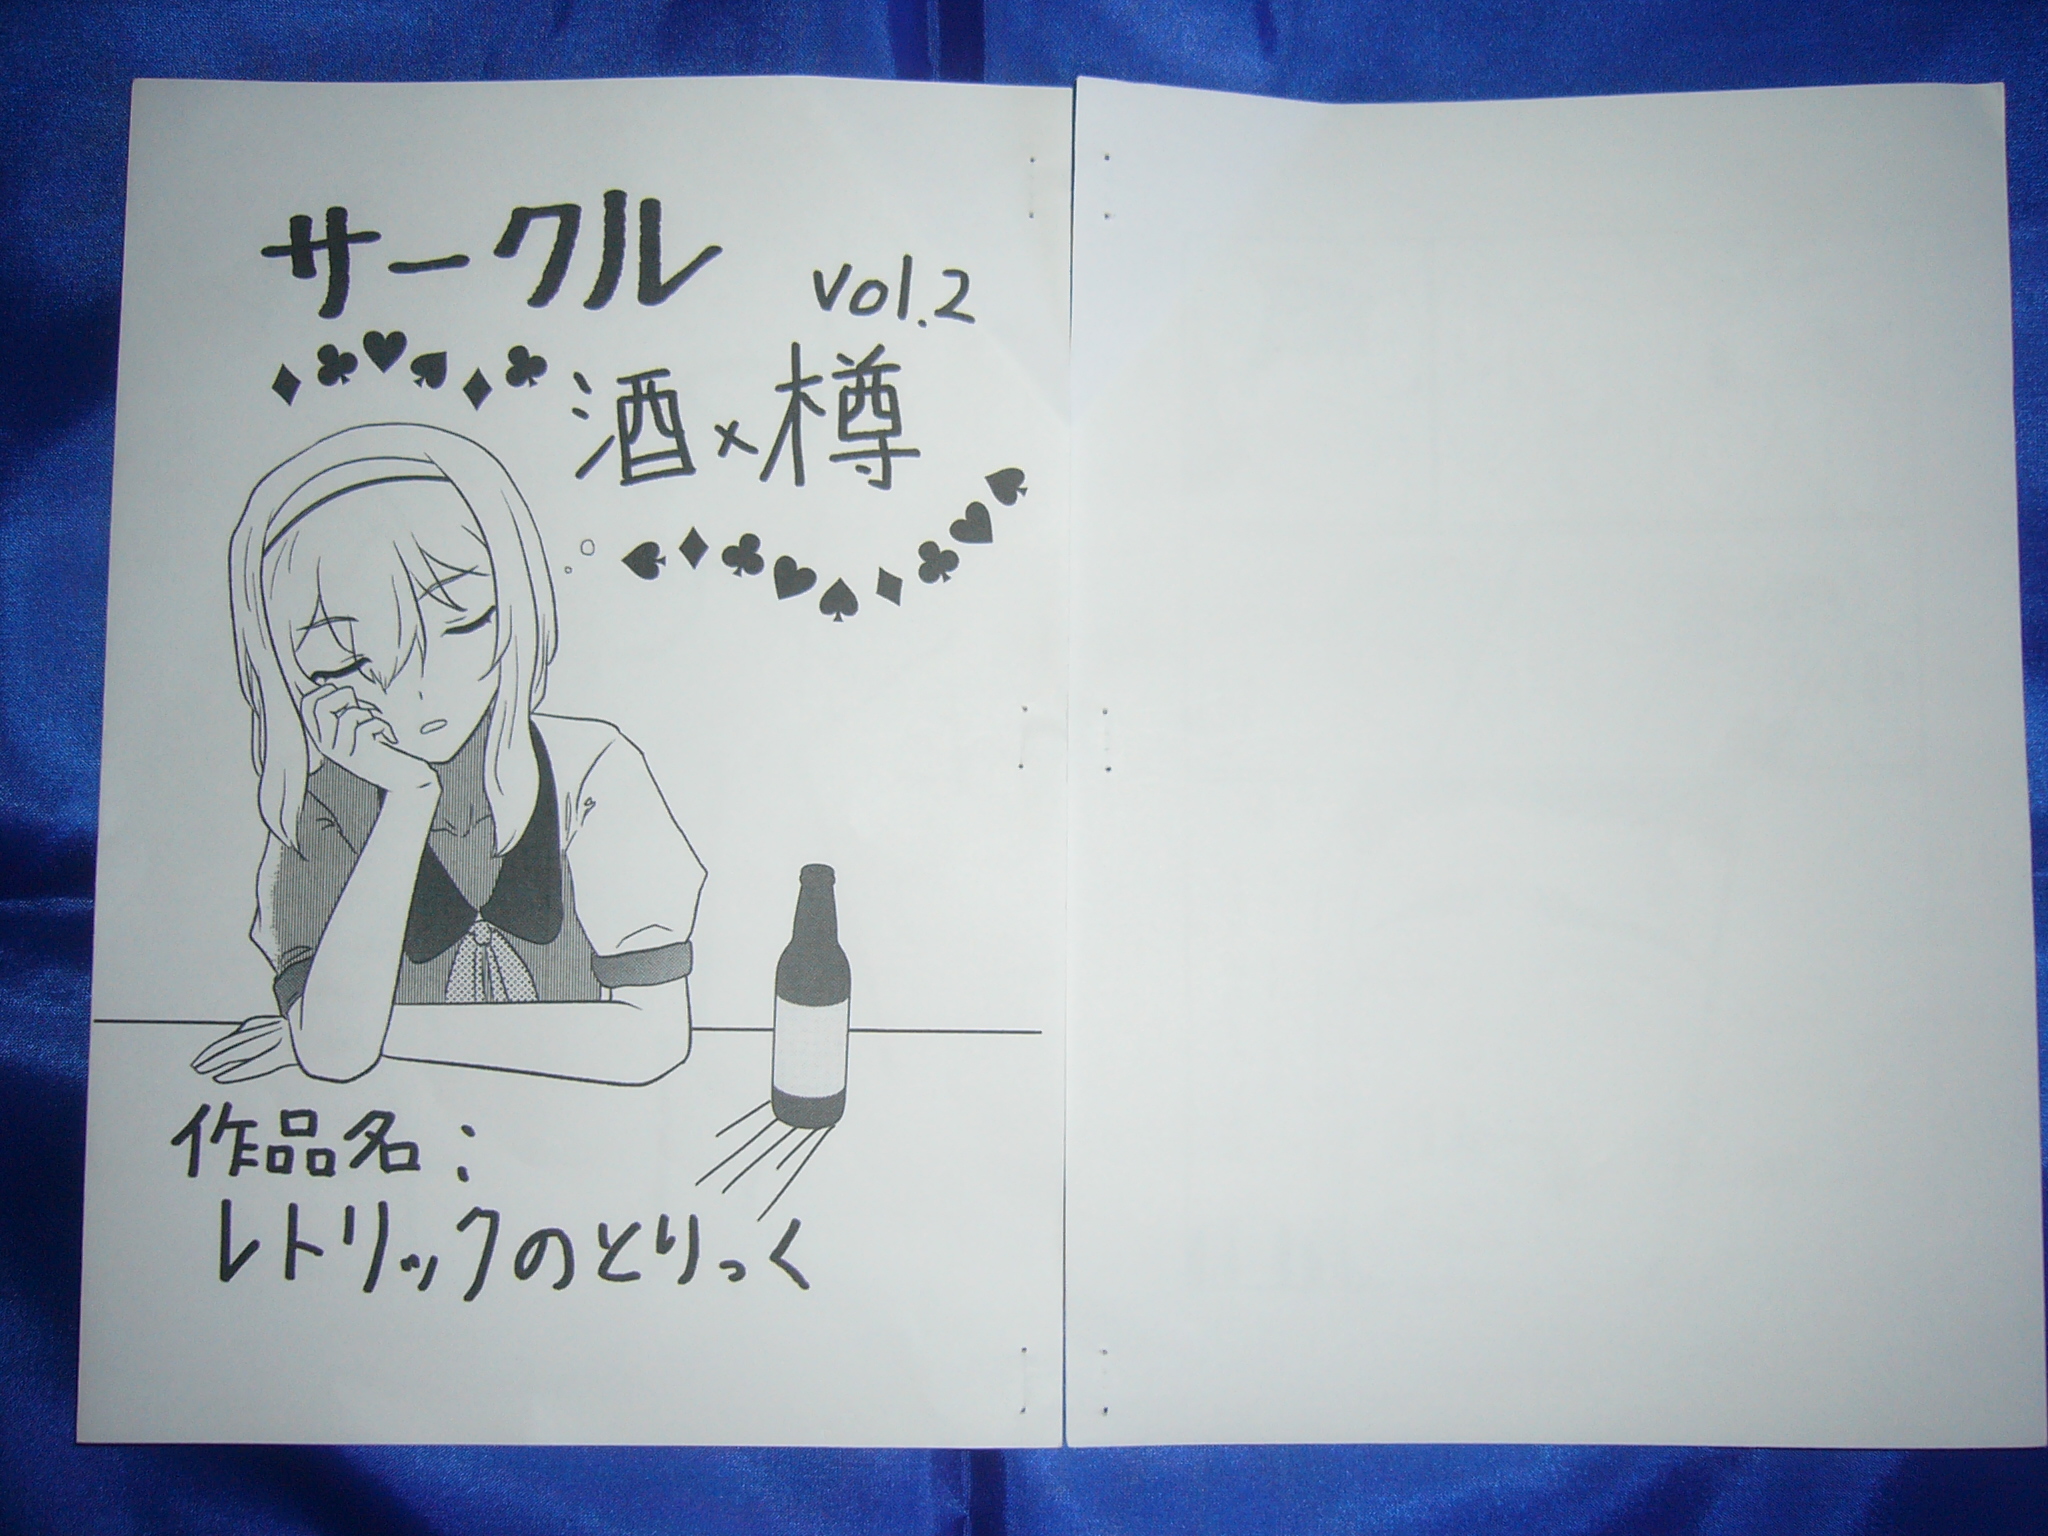 サークル
vol.2
酒×樽
作品名:
レトリックのとりっく